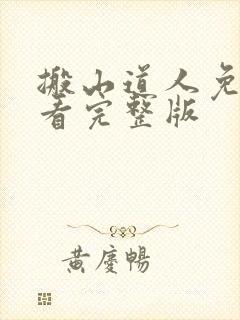 搬山道人免
看完整版
黄慶暢